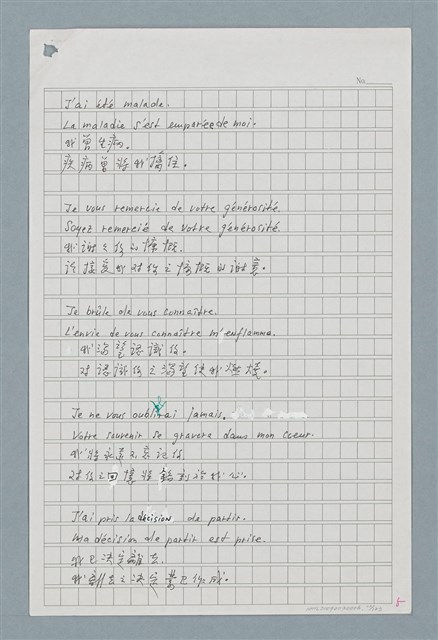 No.
J'ai été malade.
La maladie s'est emparée de moi.
我曾生病。
疾病曾將我擒住。
Je vous remercie de votre générosité.
Soyez remercié de votre générosité.
我謝謝你的慷慨。
請接受我對你之慷慨的謝意。
Je brûle de vous connaître.
L'envie de vous connaître m'enflamme.
我渴望認識你。
對認識你之渴望使我燃燒。
Je ne vous oublirai jamais.
Votre souvenir se gravera dans mon coeur.
我將永遠不忘記你
對你之回憶將銘刻於我心。
J'ai pris la décision de partir.
Ma décision de partir est prise.
我已決定離去。
我離去之決定業已作成。
8